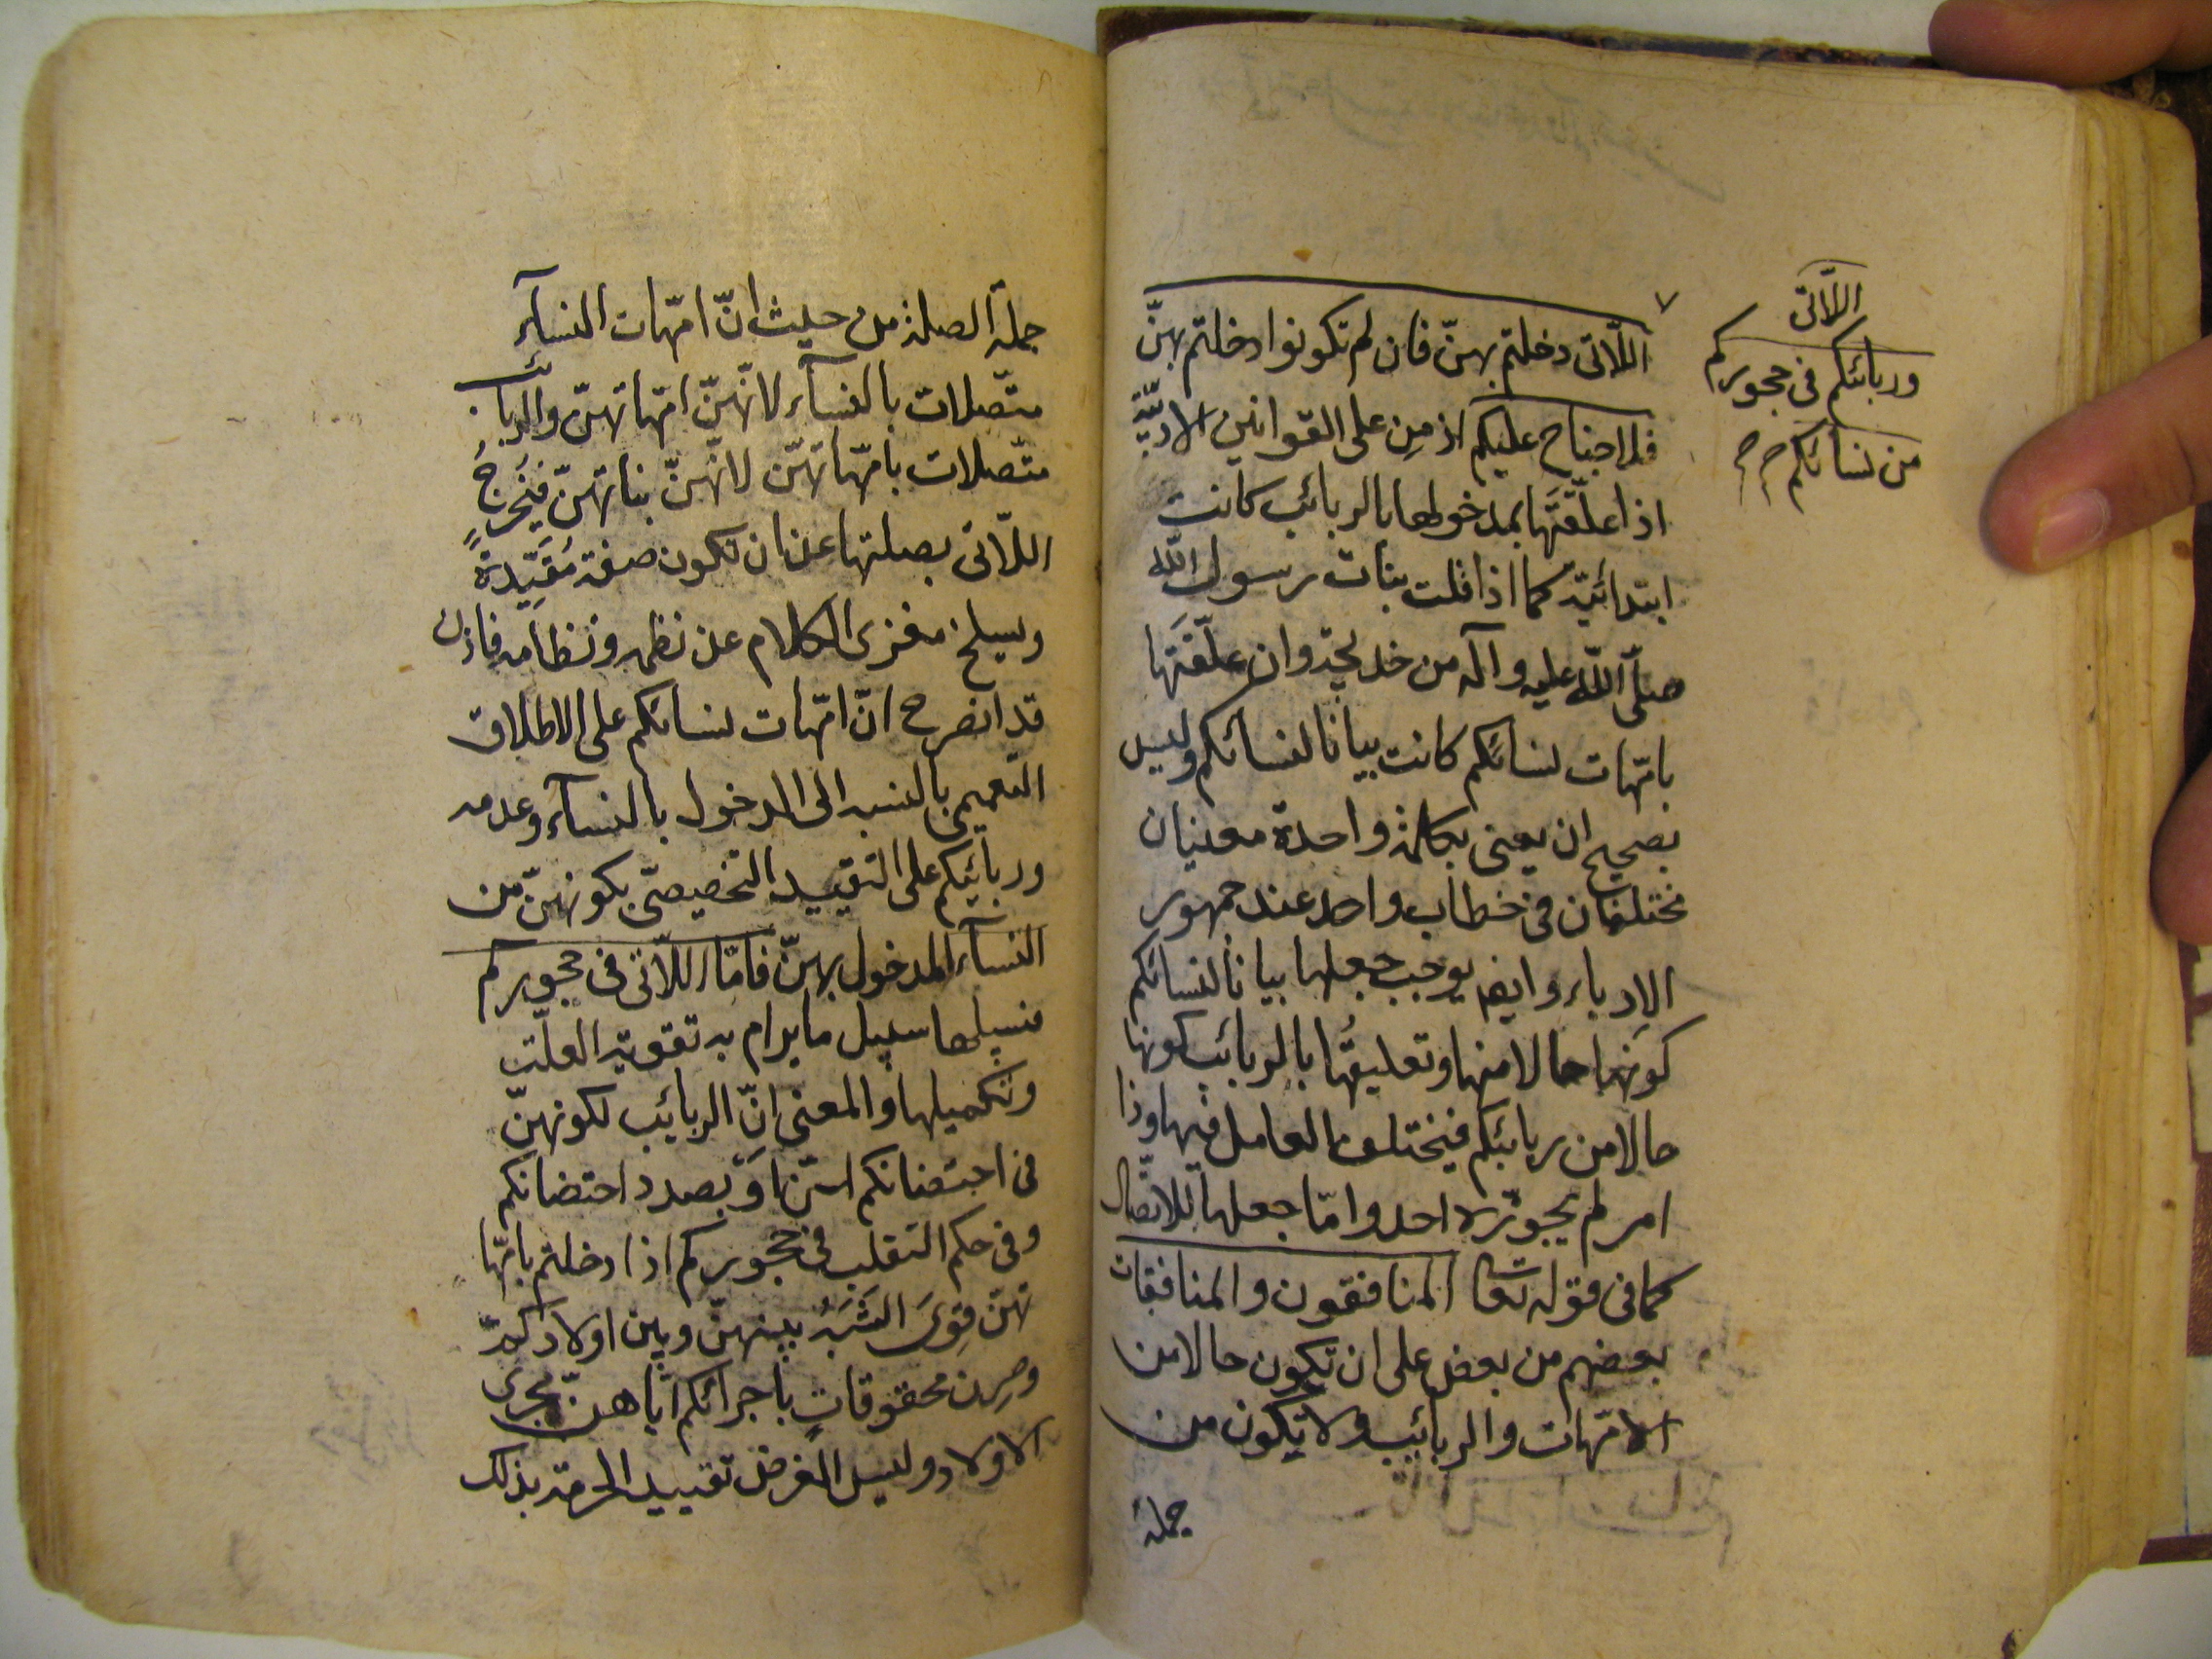 اللّاتى
وربائبكم فى حجوركم
من نسائكم
اللّاتى دخلتم بهنّ فان لم تكونوا دخلتم بهنّ
فلا جناح عليكم اذ مِن على القوانين الادبيّة
اذا علّقتَها بمدخولها بالربائب كانت
ابتدائيّة كما اذا قلت بنات رسول الله
صلّى الله عليه وآله من خديجة وان علّقتَها
بامّهات نسائكم كانت بيانا لنسائكم وليس
بصحيح ان يعنى بكلمة واحدة معنيان
مختلفان فى خطاب واحد عند جمهور
الادباء وايضا يوجب جعلها بيانا لنسائكم
كونَها حالا منها وتعليقُها بالربائب كونها
حالا من ربائبكم فيختلف العامل فيها وذا
امر لم يجوّزه احد وامّا جعلها للاتّصال
كما فى قوله تعا المنافقون والمنافقات
بعضهم من بعض على ان تكون حالا من
الامّهات والربائب ولا تكون من
جملة
جملة الصلة من حيث انّ امّهات النسآء
متّصلات بالنسآء لانّهنّ امّهاتهنّ والربائب
متّصلات بامّهاتهنّ لانّهنّ بناتهنّ فيَخرُجُ
اللّاتى بصلتها عن ان تكون صفة مُقَيِّدةً
ويسلخ مغزى الكلام عن نظمه ونظامه فاذن
قد انصرح انّ امّهات نسائكم على الاطلاق
التعميمى بالنسبة الى الدخول بالنسآء وعدمه
وربائبكم على التقييد التخصيصّى بكونهنّ من
النسآء المدخول بهنّ فامّا اللّاتى فى حجوركم
فسبيلها سبيل ما يرام به تقوية العلّة
وتكميلها والمعنى انّ الربائب لكونهنّ
فى احتضانكم او بصدد احتضانكم
وفى حكم التقلب فى حجوركم اذا دخلتم بامّها
تهنّ قوِىَ الشَبَهُ بينهنّ وبين اولادكم
وصِرن محقوقاتٍ باجرائكم ايّاهنّ مجرى
الاولاد وليس الغرض تقييد الحرمة بذلك